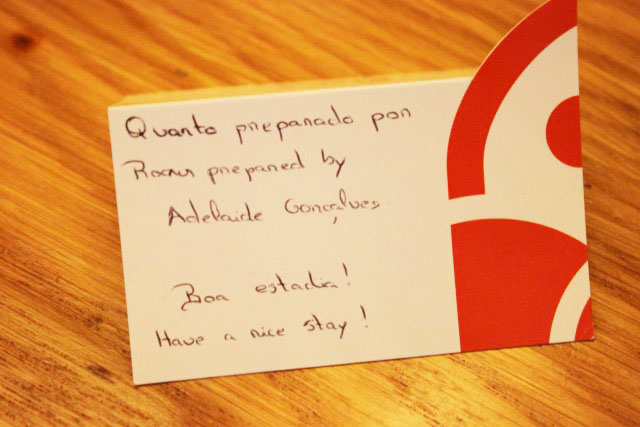 Quanto preparado por
Room prepared by
Adelaide Gonçalves
Boa estadia!
Have a nice stay!